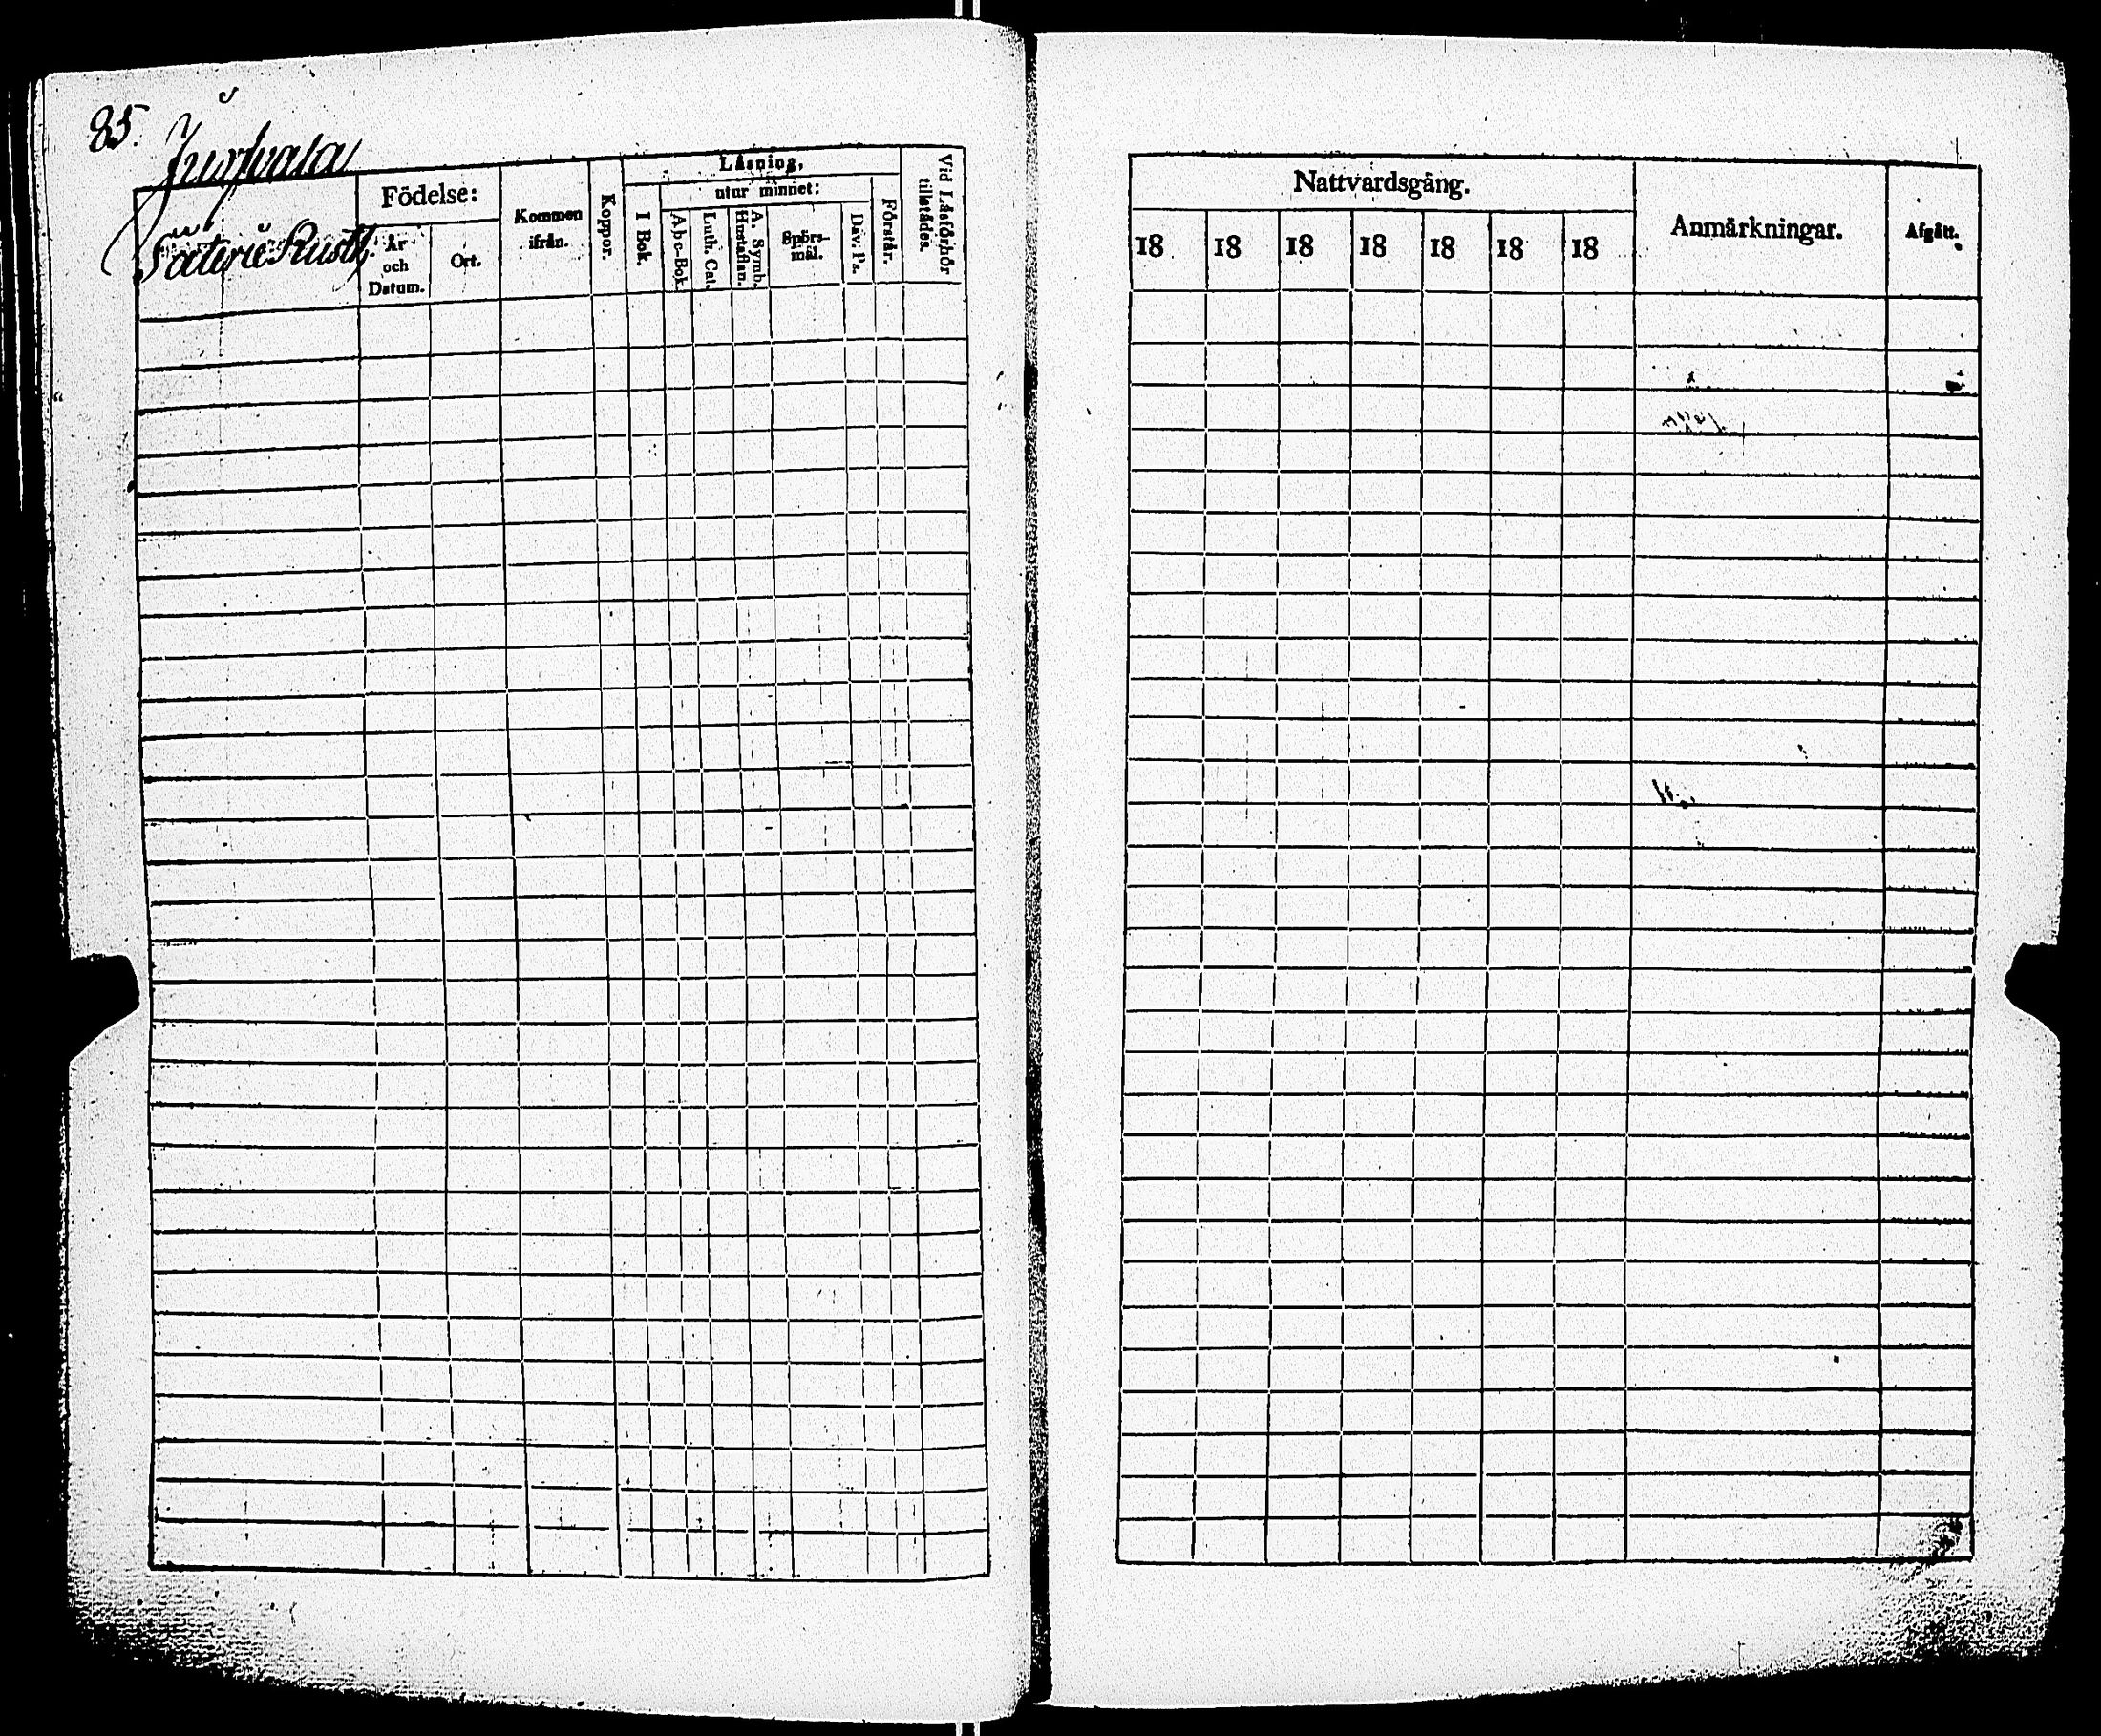 85.
Säterie Rusth.
Födelse:
År
och
Datum.
Ort.
Kommen
ifrån.
Koppor.
Läsning,
I Bok.
utur minnet:
A,b,c-Bok.
Luth. Cat.
A. Symb.
Hustaflan.
Spörs-
mål.
Dav. Ps.
Förstår.
Vid Läsförhör
tillstädes.
Nattvardsgång.
18 18 18 18 18 18 18
Anmärkningar.
Afgått.